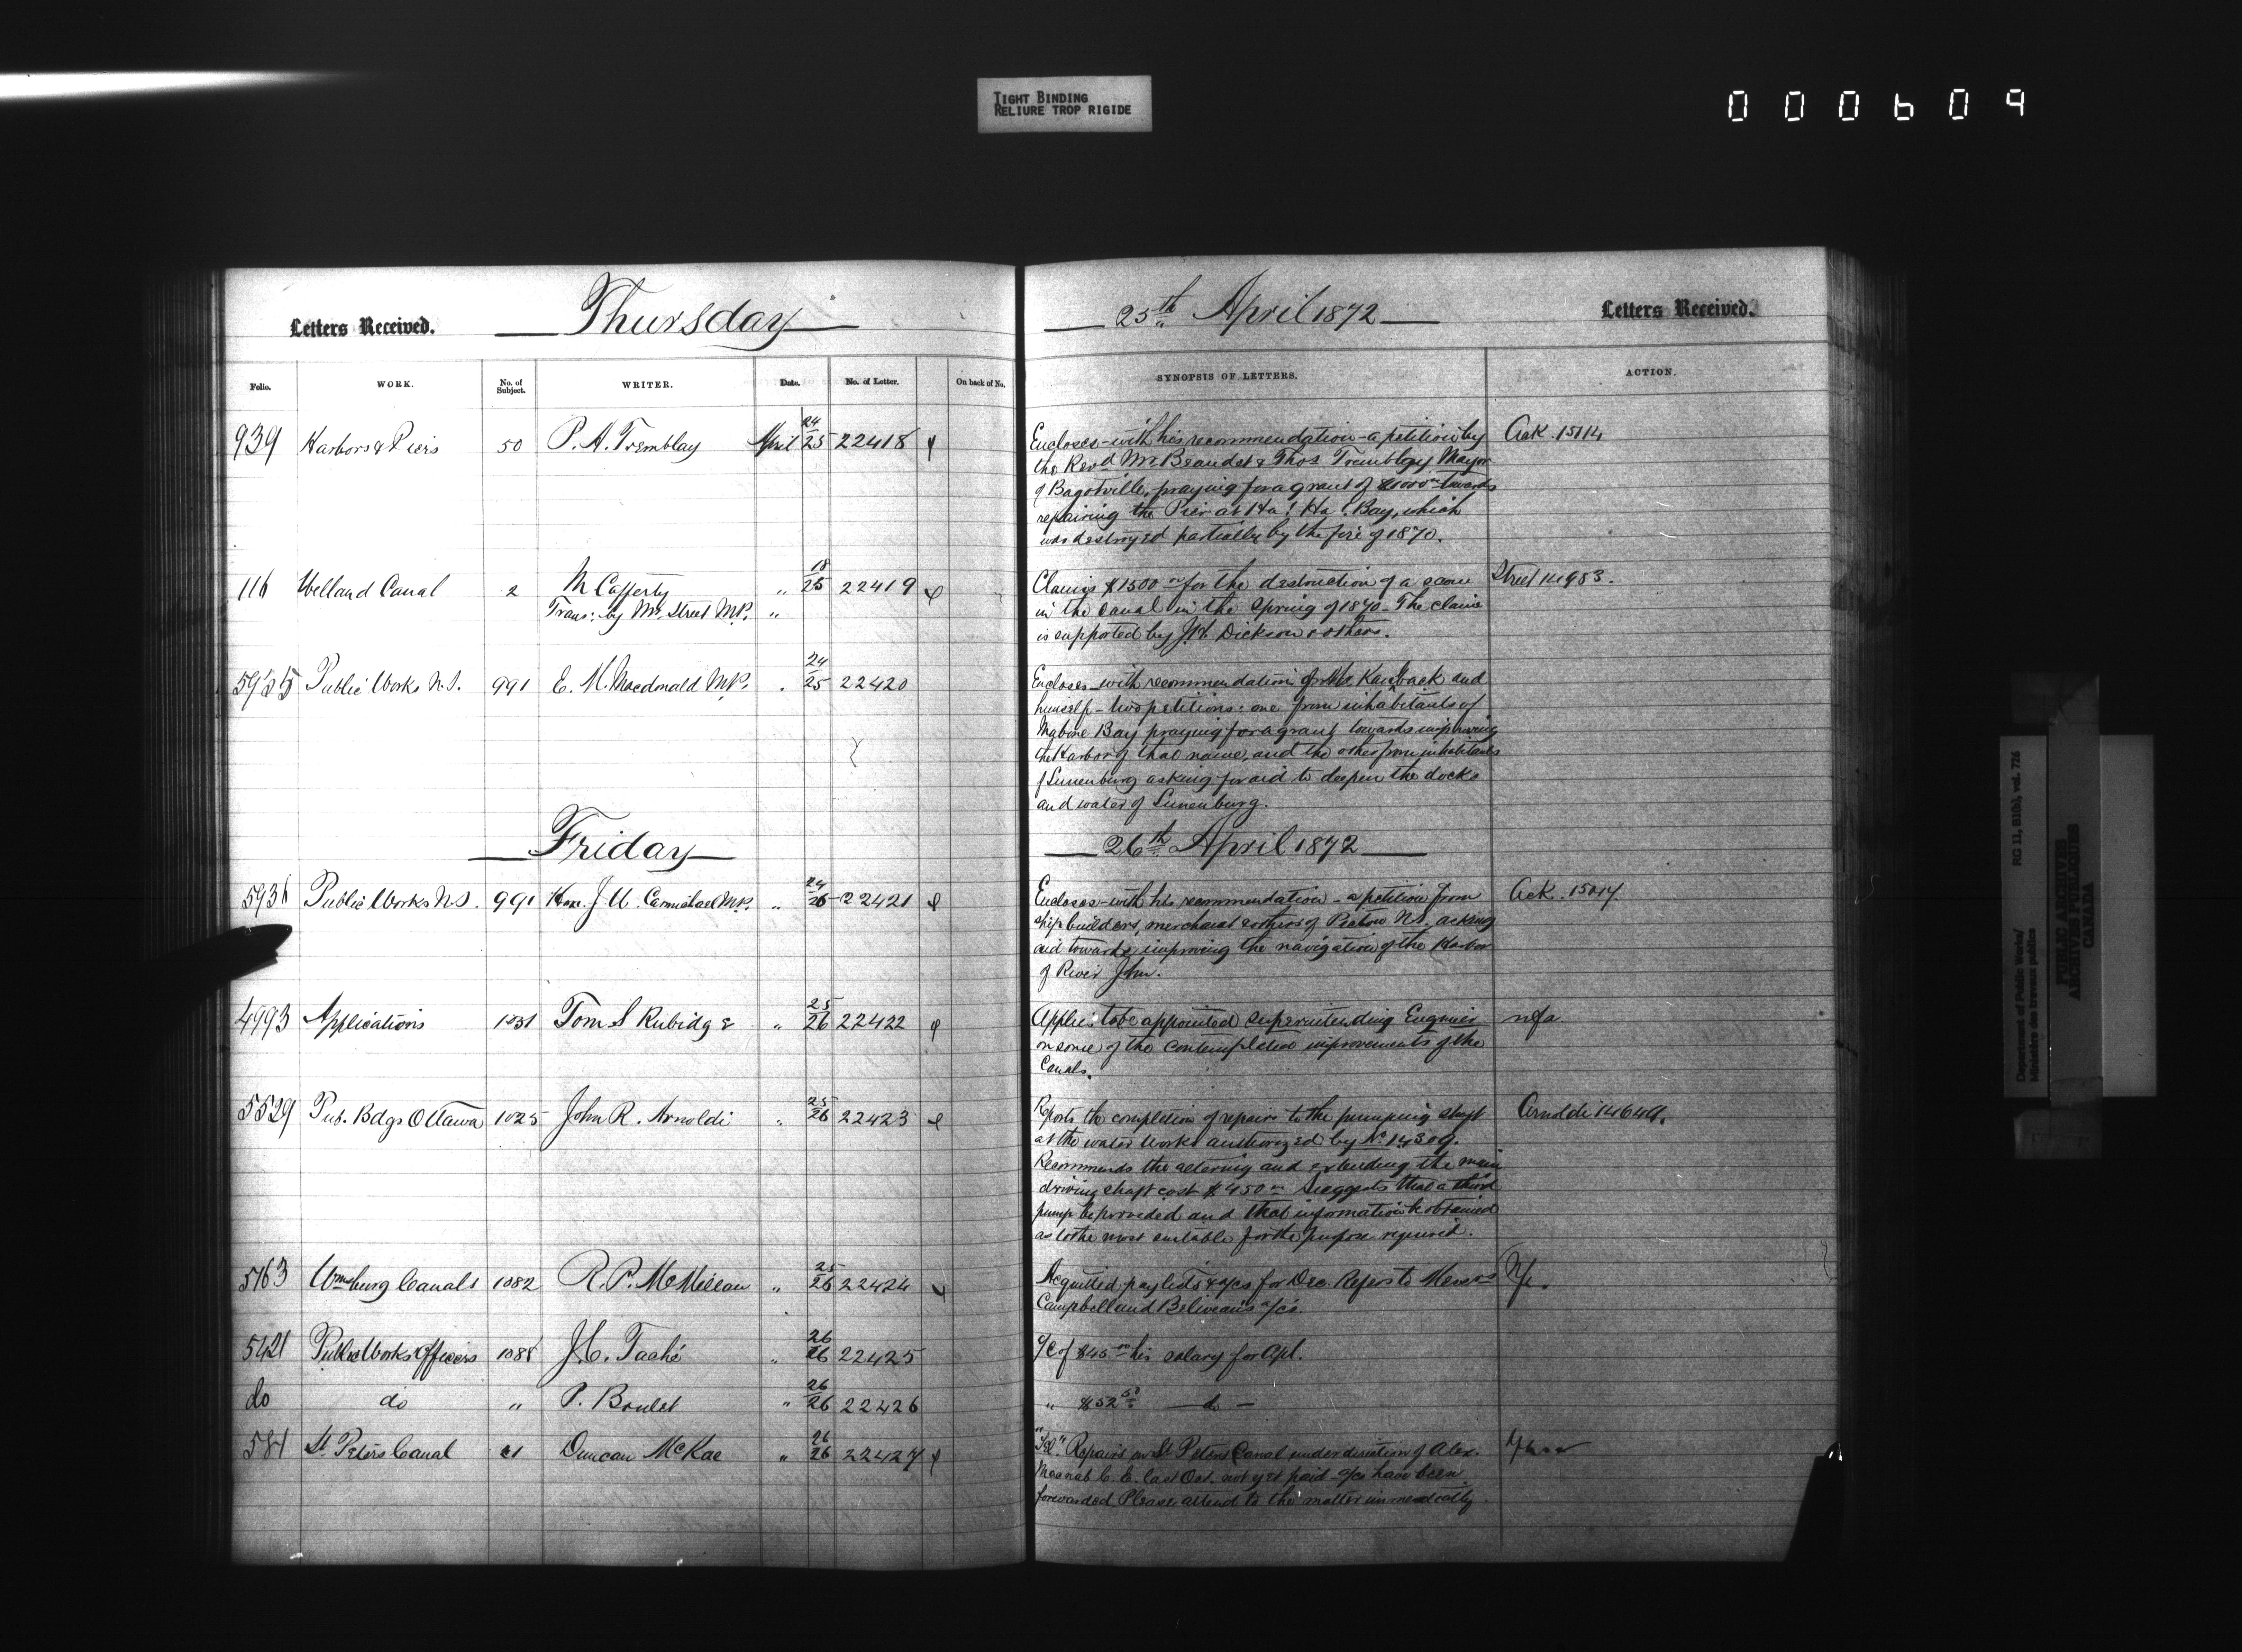 TIGHT BINDING
RELIURE TROP RIGIDE
000609
Letters Received.
Thursday
25th April 1872
Letters Received.
Folio.
WORK.
No. of Subject.
WRITER.
Date.
No. of Letter.
On back of No.
SYNOPSIS OF LETTERS.
ACTION.
939 Harbors & Piers 50 P. A. Tremblay April 24/25 22418
Encloses - with his recommendation - a petition by
the Revd Mr Beaudet & Thos Tremblay Mayor
of Bagotville, praying for a grant of $1000 towards
repairing the Pier at Ha! Ha! Bay, which
was destroyed partially by the fire of 1870.
Ack. 15114
116 Welland Canal 2 M Cafferty " 18/25 22419
Trans: by Mr. Street M.P. "
Claims $1500 for the destruction of a scow
in the canal in the Spring of 1870 - The claim
is supported by Dickson & others.
Street 14983.
5935 Public Works N.S. 991 E. M. Macdonald M.P. " 24/25 22420
Encloses - with recommendation of Mr. Kaulback and
himself - two petitions: one from inhabitants of
Mahone Bay praying for a grant towards improving
the Harbor of that name, and the other from inhabitants
of Lunenburg asking for aid to deepen the docks
and water of Lunenburg.
Friday
26th April 1872
5936 Public Works N.S. 991 Hon. J. W. Carmichael M.P. " 24/26 22421
Encloses - with his recommendation - a petition from
ship builders, merchants & others of Pictou N.S. asking
aid towards improving the navigation of the Harbor
of River John.
Ack. 15017.
4993 Applications 1031 Tom S Rubidge " 25/26 22422
Applies to be appointed superintending Engineer
on some of the contemplated improvements of the
Canals.
nfa
5529 Pub. Bdgs Ottawa 1025 John R. Arnoldi " 25/26 22423
Reports the completion of repairs to the pumping shaft
at the water Works authorized by No. 14309.
Recommends the altering and extending the main
driving shaft cost $450 Suggests that a third
pump be provided and that information be obtained
as to the most suitable for the purpose required.
Arnoldi 14649.
5163 Wmsburg Canals 1082 R. P. McMillan " 25/26 22424
Acquitted paylists & a/cs for Dec. Refers to Messrs
Campbell and Beliveau's a/cs.
5421 Public Works Officers 1088 J. C. Taché " 26/26 22425
a/c of $45 his salary for Apl.
do do " P. Boulet " 26/26 22426
" $52.50 — do —
581 St. Peters Canal 61 Duncan McRae " 26/26 22427
"Tel." Repairs on St Peters Canal under direction of Alex.
Macnab C. E. last Oct. not yet paid - a/cs have been
forwarded Please attend to the matter immediately.
Department of Public Works/
Ministère des travaux publics
RG 11, B1(b), vol. 726
PUBLIC ARCHIVES
ARCHIVES PUBLIQUES
CANADA